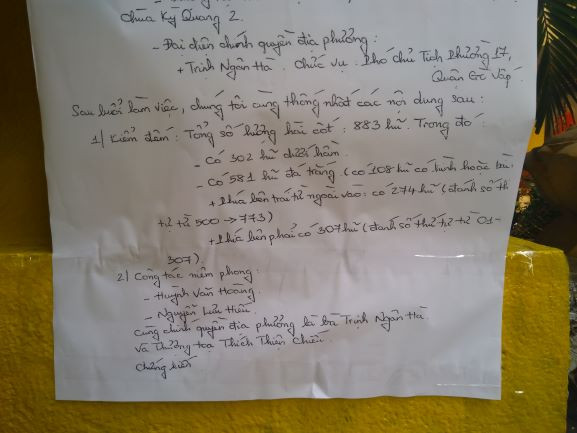 chùa Kỳ Quang 2.
- Đại diện chính quyền địa phương:
+ Trịnh Ngân Hà. Chức vụ. Phó chủ Tịch Phường 17,
Quận Gò Vấp.
Sau buổi làm việc, chúng tôi cùng thống nhất các nội dung sau:
1/ Kiểm đếm: Tổng số lượng hài cốt: 883 hũ. Trong đó:
- Có 302 hũ dưới hầm.
- Có 581 hũ đá trắng. (có 108 hũ có hình hoặc tên.
+ Phía bên trái từ ngoài vào: có 274 hũ (đánh số th
tự từ 500 → 773)
+ Phía bên phải có 307 hũ (đánh số thứ tự từ 01-
307).
2/ Công tác niêm phong:
- Huỳnh Văn Hoàng.
- Nguyễn Lưu Hiếu.
Cùng chính quyền địa phương là bà Trịnh Ngân Hà.
và Thượng toạ Thích Thiện Chiếu.
Chứng kiến